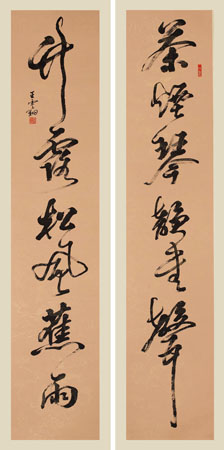 茶煙琴韻書聲
竹露松風蕉雨